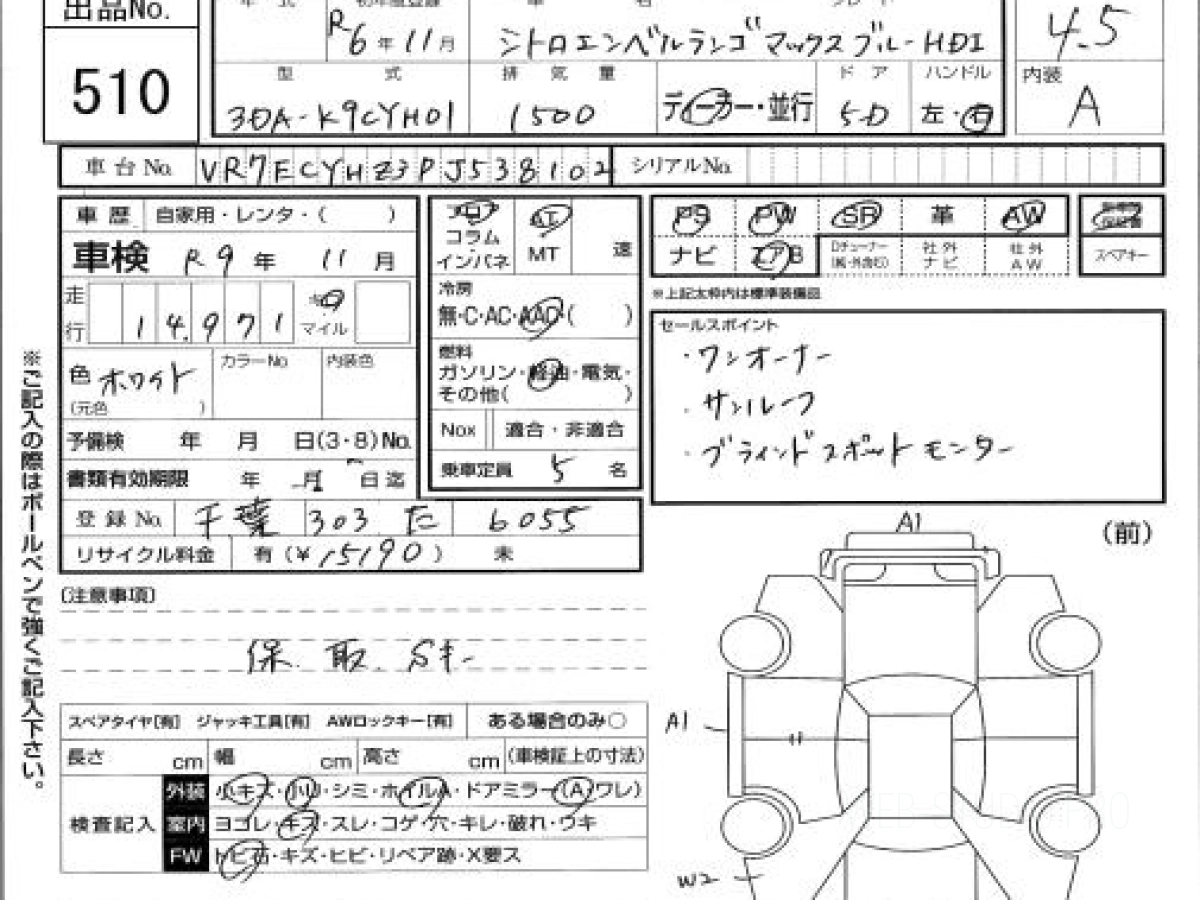 出品No.
510
年式 初年度登録 車名 グレード
R6年11月 シトロエンベルランゴ マックスブルーHDI 4.5
型式 排気量 ドア ハンドル 内装
3DA-K9CYH01 1500 ディーラー・並行 5D 左・右 A
車台No. VR7ECYHZ3PJ538102 シリアルNo.
車歴 自家用・レンタ・( )
車検 R9年 11月
走行 14,971 キロ マイル
色 ホワイト (元色 ) カラーNo 内装色
予備検 年 月 日(3・8)No.
書類有効期限 年 月 日迄
登録No. 千葉 303 た 6055
リサイクル料金 有(¥15190) 未
フロア コラム インパネ AT MT 速
冷房
無・C・AC・AAC( )
燃料
ガソリン・軽油・電気・
その他( )
Nox 適合・非適合
乗車定員 5名
PS PW SR 革 AW
ナビ エアB Dチューナー 社外ナビ 社外AW スペアキー
※上記太枠内は標準装備品
セールスポイント
・ワンオーナー
・サンルーフ
・ブラインドスポットモニター
※ご記入の際はボールペンで強くご記入下さい。
〔注意事項〕
保 取 Sキー
スペアタイヤ[有] ジャッキ工具[有] AWロックキー[有] ある場合のみ○
長さ cm 幅 cm 高さ cm (車検証上の寸法)
検査記入
外装 小キズ・小U・シミ・ホイルA・ドアミラー(A)ワレ)
室内 ヨゴレ・キズ・スレ・コゲ・穴・キレ・破れ・ウキ
FW トビ石・キズ・ヒビ・リペア跡・X要ス
A1
(前)
A1
W2